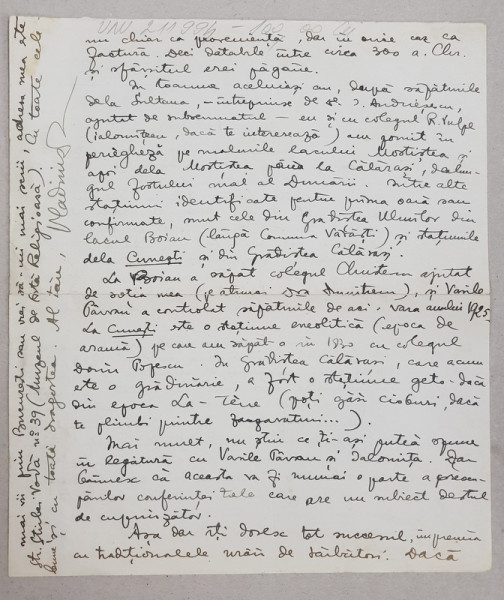 nu chiar ca proveniență, dar în orice caz ca
factură. Deci databile între circa 300 a. Chr.
și sfârșitul erei păgâne.
În toamna aceluiași an, după săpăturile
dela Sultana, – întreprinse de dl. I. Andrieșescu,
ajutat de subsemnatul – eu și cu colegul R. Vulpe
(ialomițean, dacă te interesează) am pornit în
perieghază pe malurile lacului Mostiștea și
apoi dela Mostiștea până la Călărași, dealun-
gul fostului mal al Dunării. Între alte
stațiuni identificate pentru prima oară sau
confirmate, sunt cele din Grădiștea Ulmilor din
lacul Boian (lângă Comuna Vărăști) și stațiunile
dela Cunești și din Grădiștea Călărași.
La Boian a săpat colegul Christescu ajutat
de soția mea (pe atunci Dumitrescu), și Vasile
Pârvan a controlat săpăturile de aci. vara anului 1925
La Cunești este o stațiune eneolitică (epoca de
aramă) pe care am săpat-o în 1930 cu colegul
Dorin Popescu. În Grădiștea Călărași, care acum
este o grădinărie, a fost o stațiune geto-dacă
din epoca La-Tène (poți găsi cioburi, dacă
te plimbi printre zarzavaturi...).
Mai mult, nu știu ce ți-aș putea spune
în legătură cu Vasile Pârvan și Ialomița. Dar
bănuesc că aceasta va fi numai o parte a preocu-
părilor conferinței tale care are un subiect destul
de cuprinzător.
Așa dar îți doresc tot succesul, împreună
cu tradiționalele urări de sărbători. Dacă
mai vii prin București sau vrei să-mi mai scrii, adresa mea este
Str. Știrbei-Vodă nº 39 (Muzeul de Artă Religioasă). Cu toate cele
bune și cu toată dragostea. Al tău, Vladimir